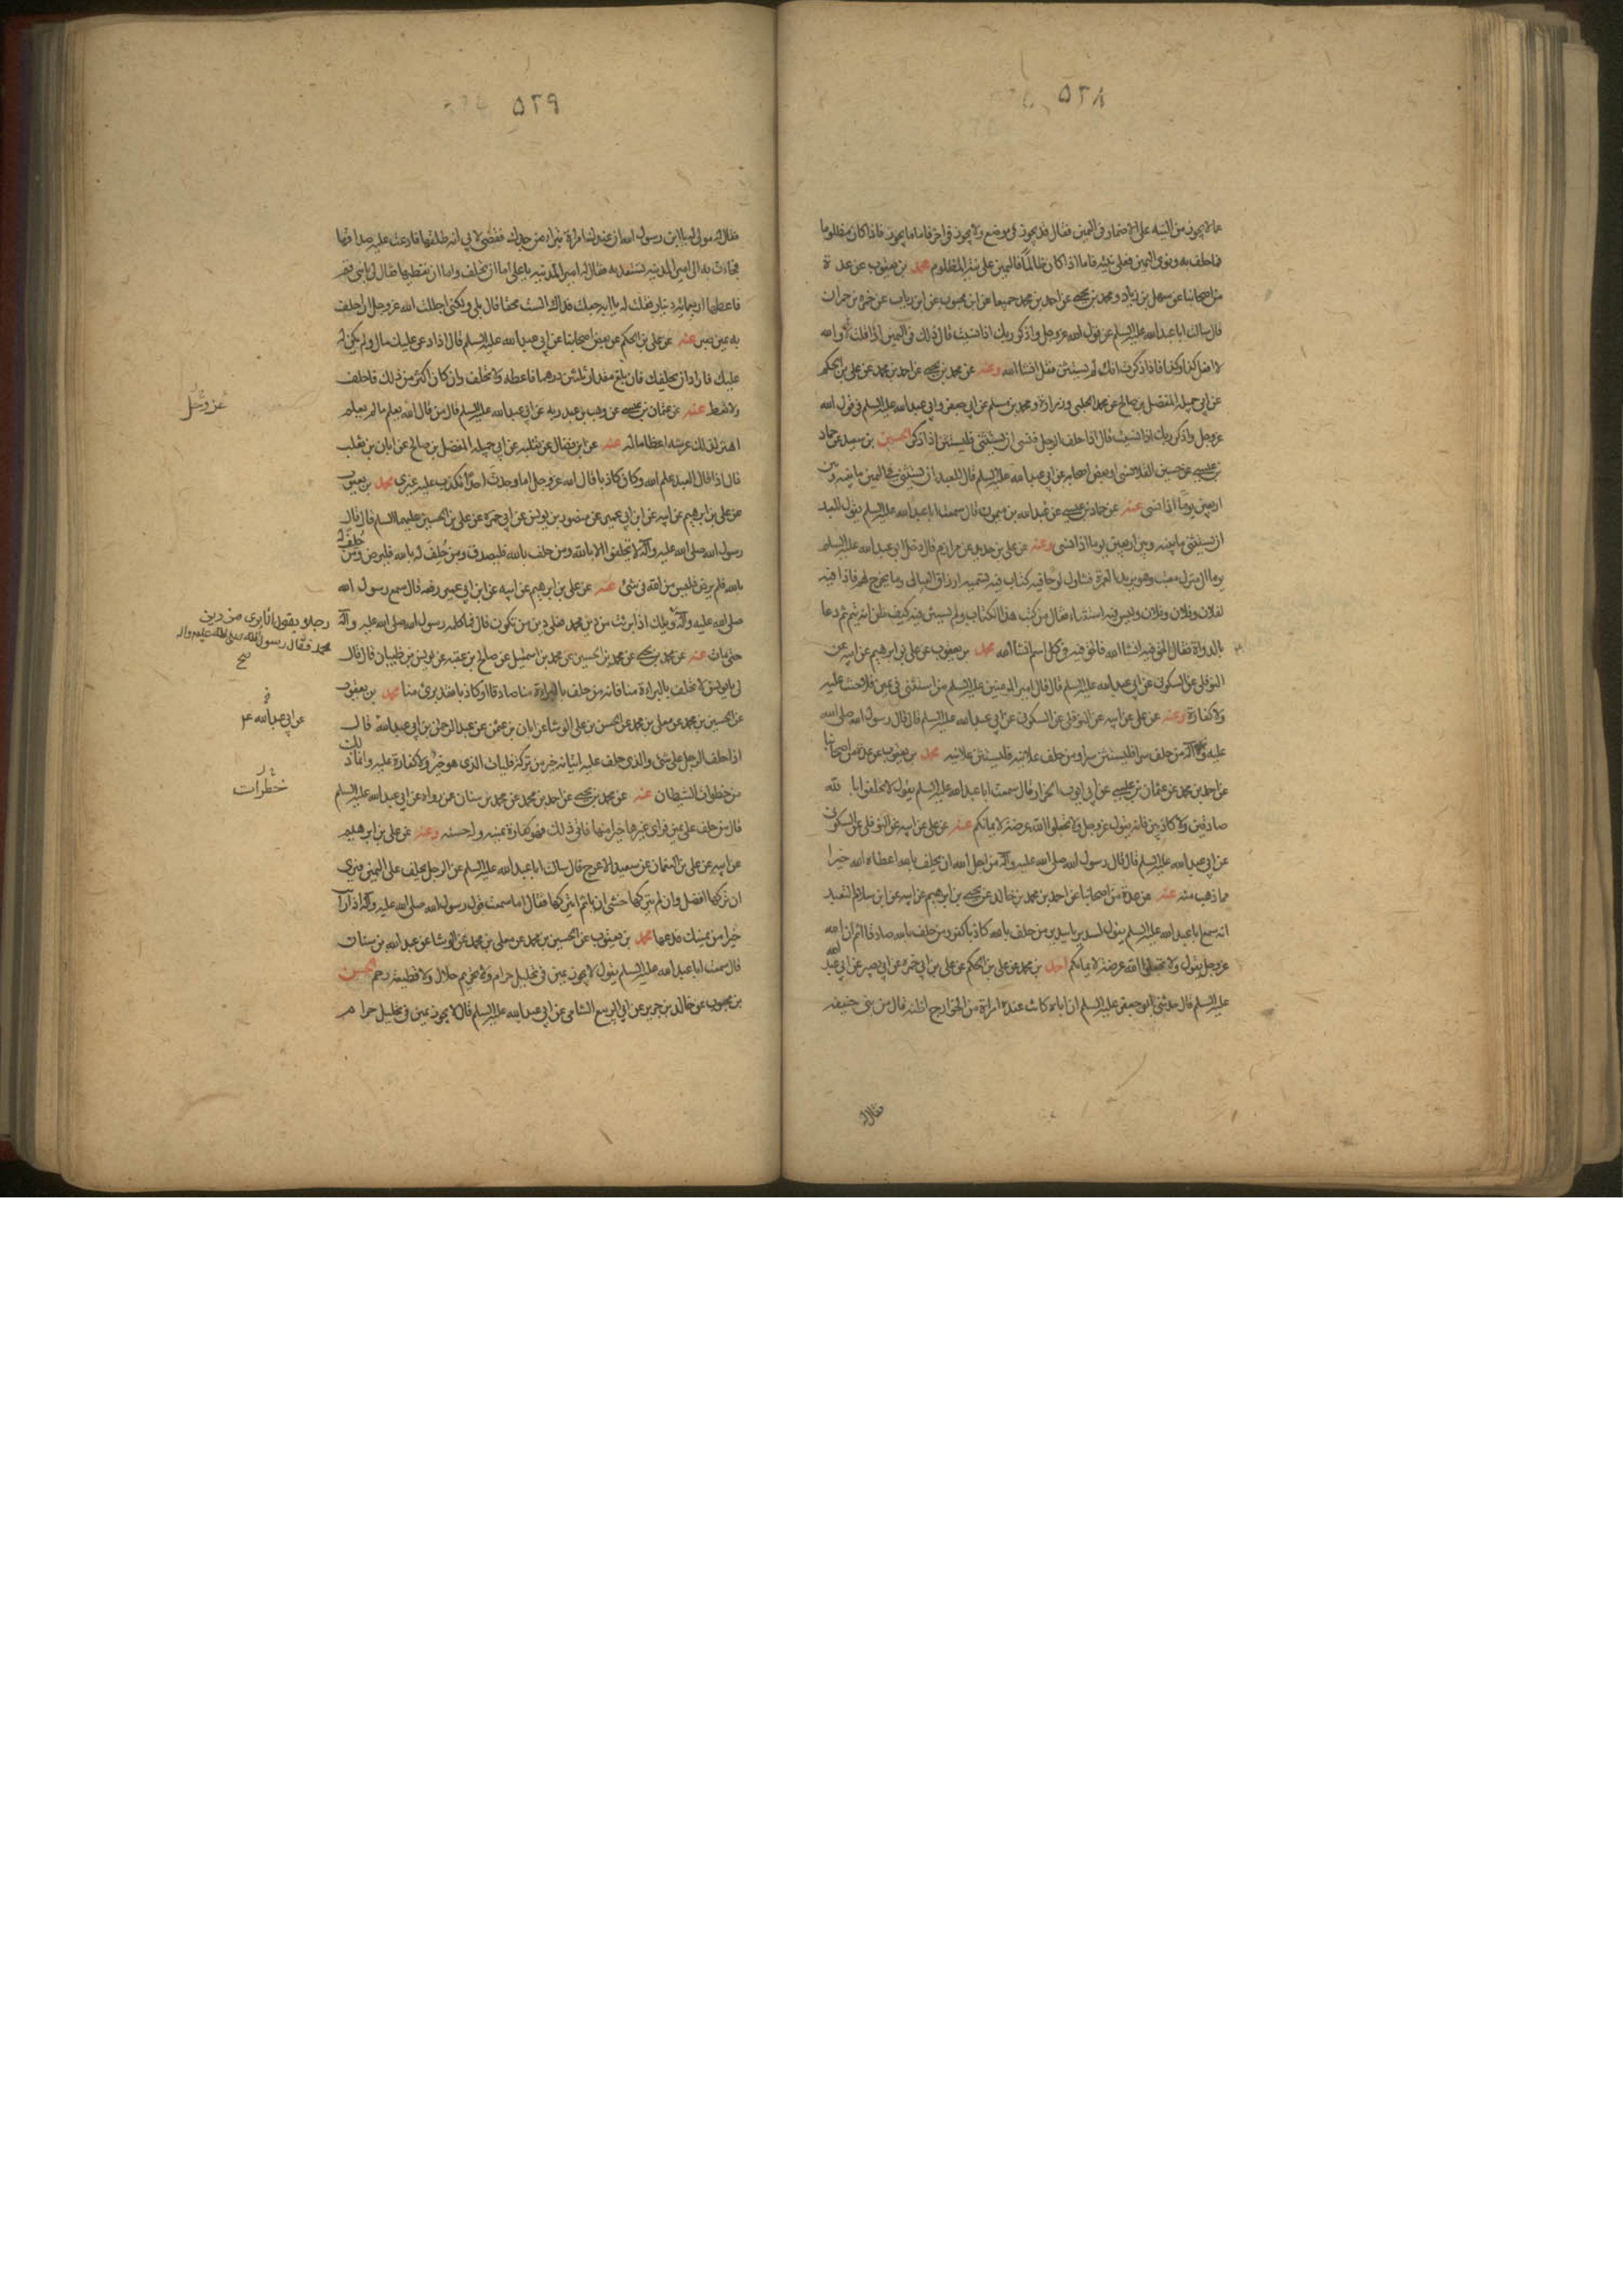 ٥٢٨
ما لا يجوز من النية على الاضمار فى اليمين فقال قد يجوز فى موضع ولا يجوز فى اخر فاما ما يجوز فاذا كان مظلوما
فما حلف به ونوى اليمين فعلى نيته فاما اذا كان ظالماً فاليمين على نية المظلوم محمد بن يعقوب عن عدة
من اصحابنا عن سهل بن زياد و محمد بن يحيى عن احمد بن محمد جميعا عن ابن محبوب عن ابن رياب عن حمزة بن حمران
قال سالت ابا عبد الله عليه السلم عن قول الله عز وجل واذكر ربك اذا نسيت قال ذلك فى اليمين اذا قلت والله
لا افعل كذا وكذا فاذا ذكرت انك لم تستثن فقل انشا الله وعنه عن محمد بن يحيى عن احمد بن محمد عن على بن الحكم
عن ابى جميله المفضل بن صالح عن محمد الحلبى وزرارة ومحمد بن مسلم عن ابى جعفر وابى عبد الله عليه السلم فى قول الله
عز وجل واذكر ربك اذا نسيت قال اذا حلف الرجل فنسى ان يستثنى فليستثن اذا ذكر الحسين بن سعيد عن حماد
بن عيسى عن حسين القلانسى او بعض اصحابه عن ابى عبد الله عليه السلم قال للعبد ان يستثنى فى اليمين ما بينه وبين
اربعين يوماً اذا نسى عنه عن حماد بن عيسى عن عبد الله بن ميمون قال سمعت ابا عبد الله عليه السلم يقول للعبد
ان يستثنى ما بينه وبين اربعين يوما اذا نسى وعنه عن على بن حديد عن مرازم قال دخل ابو عبد الله عليه السلم
يوما الى منزل معتب وهو يريد العمرة فتناول لوحا فيه كتاب فيه تسمية ارزاق العيال وما يخرج لهم فاذا فيه
لفلان وفلان وفلان وليس فيه استثناء فقال من كتب هذا الكتاب ولم يستثن فيه كيف ظن انه يتم ثم دعا
بالدواة فقال الحق فيه انشا الله فالحق فيه فى كل اسم انشا الله محمد بن يعقوب عن على بن ابرهيم عن ابيه عن
النوفلى عن السكونى عن ابى عبد الله عليه السلم قال قال امير المومنين عليه السلم من استثنى فى يمين فلا حنث عليه
ولا كفارة وعنه عن على عن ابيه عن النوفلى عن السكونى عن ابى عبد الله عليه السلم قال قال رسول الله صلى الله
عليه وآله من حلف سرا فليستثن سرا ومن حلف علانية فليستثن علانيه محمد بن يعقوب عن عدة من اصحابنا
عن احمد بن محمد عن عثمان بن عيسى عن ابى ايوب الخزاز قال سمعت ابا عبد الله عليه السلم يقول لا تحلفوا بالله
صادقين ولا كاذبين فانه يقول عز وجل ولا تجعلوا الله عرضة لايمانكم عنه عن على عن ابيه عن النوفلى عن السكونى
عن ابى عبد الله عليه السلم قال قال رسول الله صلى الله عليه وآله من اجل الله ان يحلف بالله اعطاه الله خيرا
مما ذهب منه عنه عن عدة من اصحابنا عن احمد بن محمد بن خالد عن يحيى بن ابرهيم عن ابيه عن ابى سلام المتعبد
انه سمع ابا عبد الله عليه السلم يقول لسدير يا سدير من حلف بالله كاذبا كفر ومن حلف بالله صادقا اثم ان الله
عز وجل يقول ولا تجعلوا الله عرضة لايمانكم احمد بن محمد عن على بن الحكم عن على بن ابى حمزه عن ابى بصير عن ابى عبد الله
عليه السلم قال حدثنى ابو جعفر عليه السلم ان اباه كانت عنده امراة من الخوارج اظنه قال من بنى حنيفه
فقال له
٥٢٩
فقال له مولى له يا ابن رسول الله ان عندك امراة تبرا من جدك فقضى لابى انه طلقها فادعت عليه صداقها
فجاءت به الى امير المدينة تستعديه فقال له امير المدينه يا على اما ان تحلف واما ان تعطيها فقال لى يا بنى قم
فاعطها اربعمائة دينار فقلت له يا ابه جعلت فداك الست محقا قال بلى ولكنى اجللت الله عز وجل ان احلف
به يمين صبر عنه عن على بن الحكم عن بعض اصحابنا عن ابى عبد الله عليه السلم قال اذا ادعى عليك مال ولم يكن له
عليك فاراد ان يحلفك فان بلغ مقدار ثلثين درهما فاعطه ولا تحلف وان كان اكثر من ذلك فاحلف
ولا تعط عنه عن عثمان بن عيسى عن وهب بن عبد ربه عن ابى عبد الله عليه السلم قال من قال الله يعلم ما لم يعلم
عز وجل
اهتز لذلك عرشه اعظاما له عنه عن ابن فضال عن ثعلبه عن ابى جميله المفضل بن صالح عن ابان بن تغلب
قال اذا قال العبد علم الله وكان كاذبا قال الله عز وجل اما وجدت احداً تكذب عليه غيرى محمد بن يعقوب
عن على بن ابرهيم عن ابيه عن ابن ابى عمير عن منصور بن يونس عن ابى حمزه عن على بن الحسين عليهما السلم قال قال
رسول الله صلى الله عليه وآله لا تحلفوا الا بالله ومن حلف بالله فليصدق ومن حلف له بالله فليرض ومن حُلِفَ له
بالله فلم يرض فليس من الله فى شئ عنه عن على بن ابرهيم عن ابيه عن ابن ابى عمير رفعه قال سمع رسول الله
رجلا يقول انا برئ من دين
محمد فقال رسول الله صلى الله عليه واله
صح
صلى الله عليه وآله ويلك اذا برئت من دين محمد فعلى دين من تكون قال فما كلمه رسول الله صلى الله عليه وآله
حتى مات عنه عن محمد بن يحيى عن محمد بن الحسين عن محمد بن اسمعيل عن صالح بن عقبه عن يونس بن ظبيان قال قال
لى يا يونس لا تحلف بالبراءة منا فانه من حلف بالبراءة منا صادقا او كاذبا فقد برئ منا محمد بن يعقوب
عن الحسين بن محمد عن معلى بن محمد عن الحسن بن على الوشا عن ابان بن عثمن عن عبد الرحمن بن ابى عبد الله قال
عن ابى عبد الله ع
اذا حلف الرجل على شئ والذى حلف عليه اتيانه خير من تركه فليات الذى هو خير ولا كفارة عليه وانما ذلك
من خطوات الشيطان عنه عن محمد بن يحيى عن احمد بن محمد عن محمد بن سنان عمن رواه عن ابى عبد الله عليه السلم
خطرات
قال من حلف على يمين فراى غيرها خيرا منها فاتى ذلك فهو كفارة يمينه وله حسنه وعنه عن على بن ابرهيم
عن ابيه عن على بن النعمان عن سعيد الاعرج قال سالت ابا عبد الله عليه السلم عن الرجل يحلف على اليمين فيرى
ان تركها افضل وان لم يتركها خشى ان ياثم ايتركها فقال اما سمعت قول رسول الله صلى الله عليه وآله اذا رايت
خيرا من يمينك فدعها محمد بن يعقوب عن الحسين بن محمد عن معلى بن محمد عن الوشا عن عبد الله بن سنان
قال سمعت ابا عبد الله عليه السلم يقول لا يجوز يمين فى تحليل حرام ولا تحريم حلال ولا قطيعة رحم الحسين
بن محبوب عن خالد بن جرير عن ابى الربيع الشامى عن ابى عبد الله عليه السلم قال لا يجوز يمين فى تحليل حرام